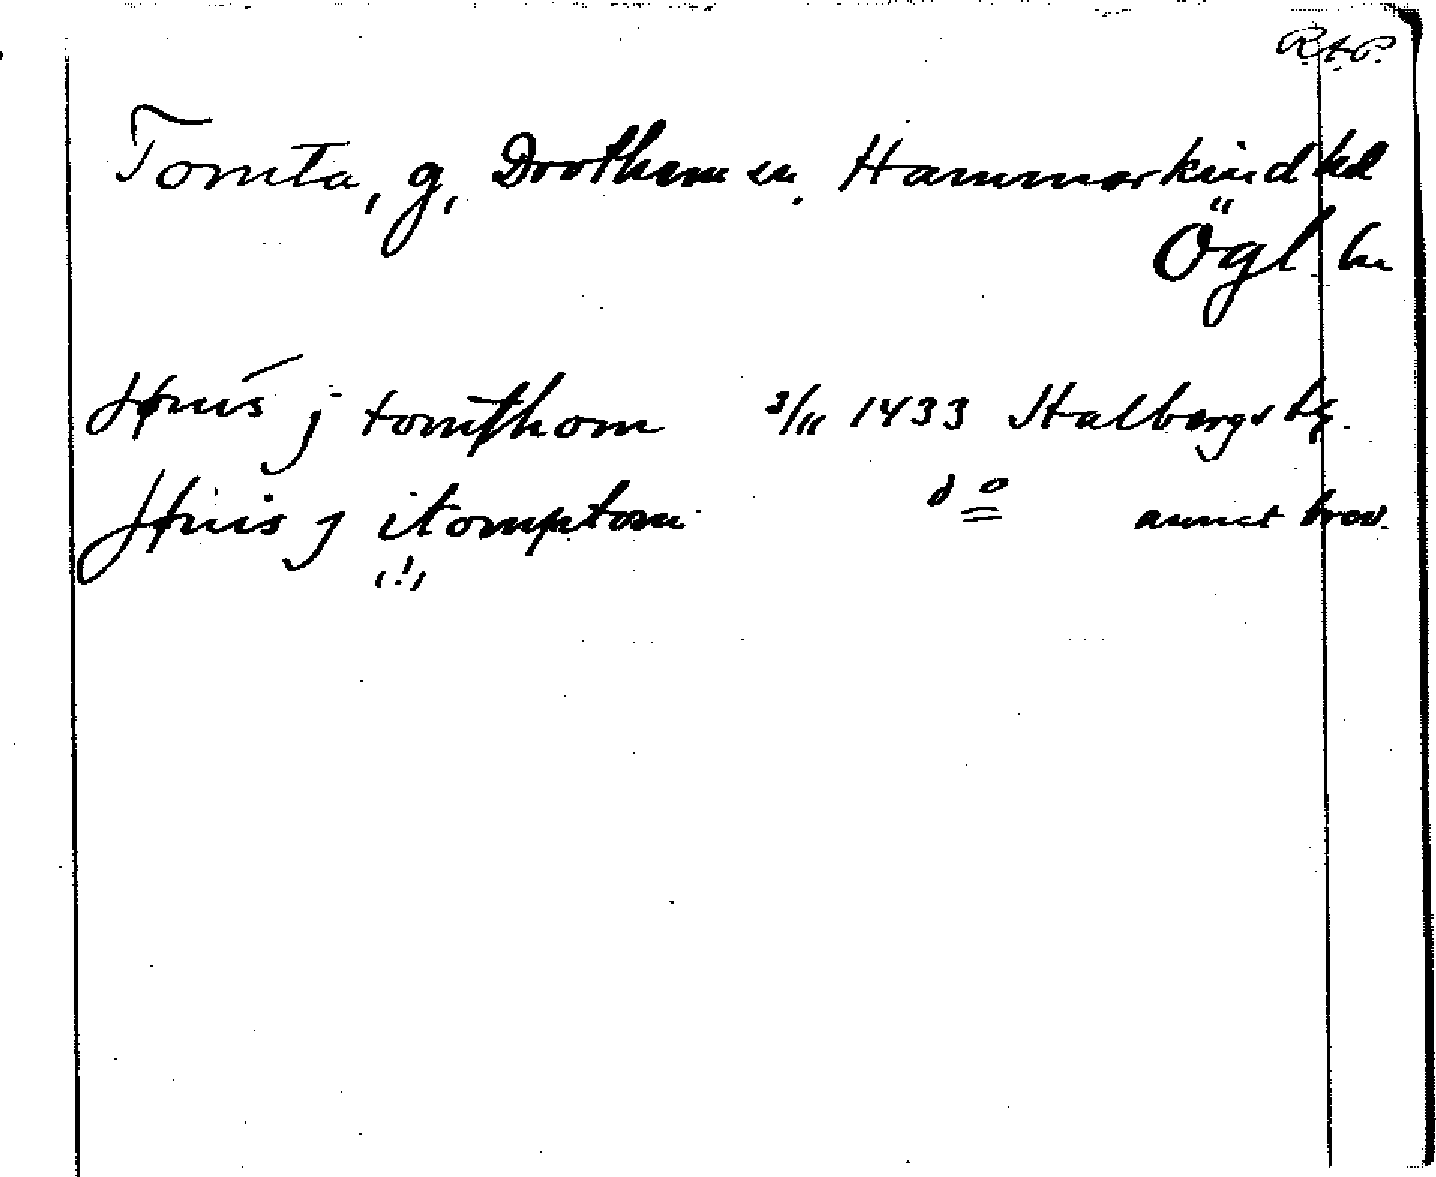 R.A.P.
Tomta, g, Drothem sn. Hammarkind hd
Ögl. län
Jfnis j tompthom 3/11 1433 Stalbergs
Jfnis j itomptom d:o annat brev.
(!)